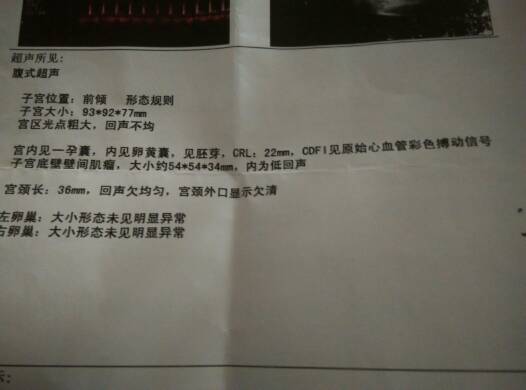 超声所见:
腹式超声
子宫位置：前倾 形态规则
子宫大小：93*92*77mm
宫区光点粗大，回声不均
宫内见一孕囊，内见卵黄囊，见胚芽，CRL：22mm，CDFI见原始心血管彩色搏动信号
子宫底壁壁间肌瘤，大小约54*54*34mm，内为低回声
宫颈长：36mm，回声欠均匀，宫颈外口显示欠清
左卵巢：大小形态未见明显异常
右卵巢：大小形态未见明显异常
示: